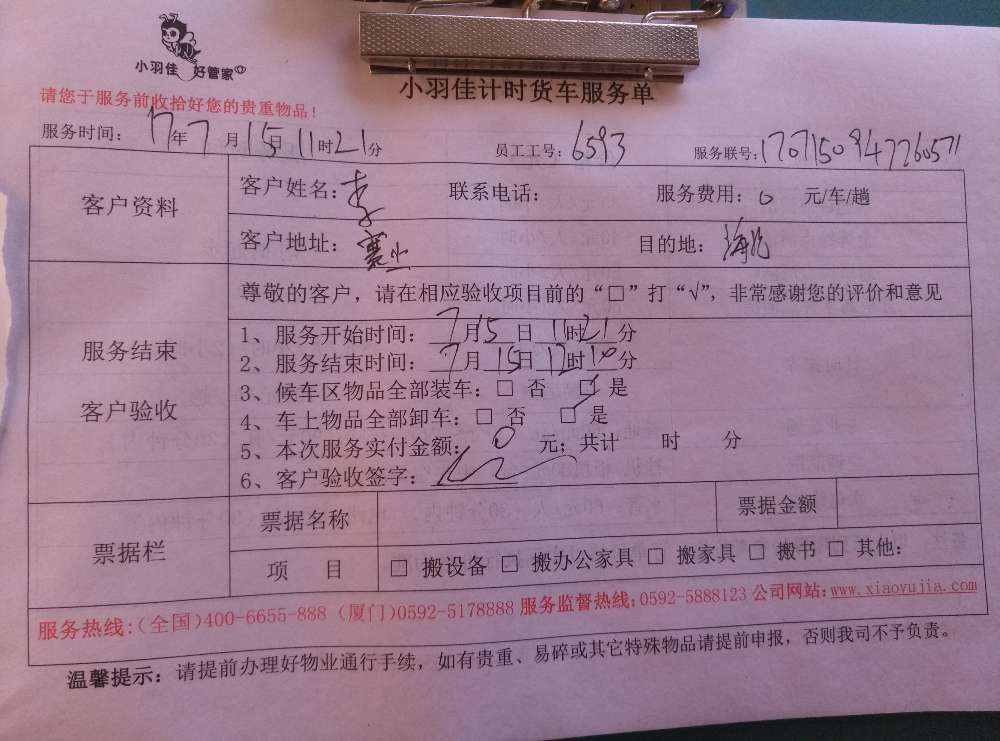 小羽佳 好管家
小羽佳计时货车服务单
请您于服务前收拾好您的贵重物品！
服务时间： 17年7月15日11时21分 员工工号：6593 服务联号：1707150947260571
客户资料
客户姓名：李 联系电话： 服务费用：0 元/车/趟
客户地址： 目的地：
服务结束
客户验收
尊敬的客户，请在相应验收项目前的“□”打“√”，非常感谢您的评价和意见
1、服务开始时间：7月15日11时21分
2、服务结束时间：7月15日12时10分
3、候车区物品全部装车：□ 否 ☑ 是
4、车上物品全部卸车：□ 否 ☑ 是
5、本次服务实付金额：0 元；共计 时 分
6、客户验收签字：
票据栏
票据名称 票据金额
项 目 □ 搬设备 □ 搬办公家具 □ 搬家具 □ 搬书 □ 其他：
服务热线：（全国）400-6655-888（厦门）0592-5178888 服务监督热线：0592-5888123 公司网站：www.xiaoyujia.com
温馨提示：请提前办理好物业通行手续，如有贵重、易碎或其它特殊物品请提前申报，否则我司不予负责。